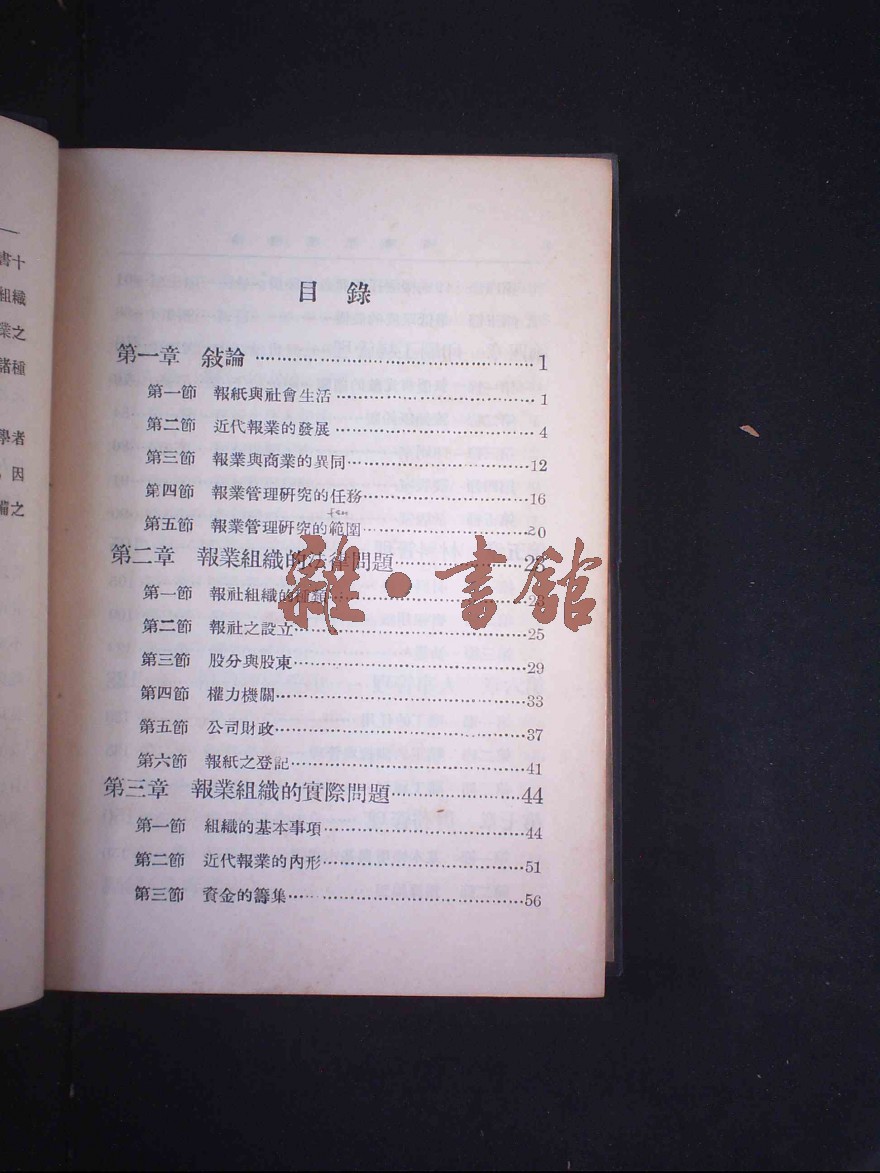 目錄
第一章 敍論 1
第一節 報紙與社會生活 1
第二節 近代報業的發展 4
第三節 報業與商業的異同 12
第四節 報業管理研究的任務 16
第五節 報業管理研究的範圍
第二章 報業組織的法律問題 23
第一節 報社組織的種類 23
第二節 報社之設立 25
第三節 股分與股東 29
第四節 權力機關 33
第五節 公司財政 37
第六節 報紙之登記 41
第三章 報業組織的實際問題 44
第一節 組織的基本事項 44
第二節 近代報業的內形 51
第三節 資金的籌集 56
雜·書館
書十
組織
業之
諸種
學者
因
備之